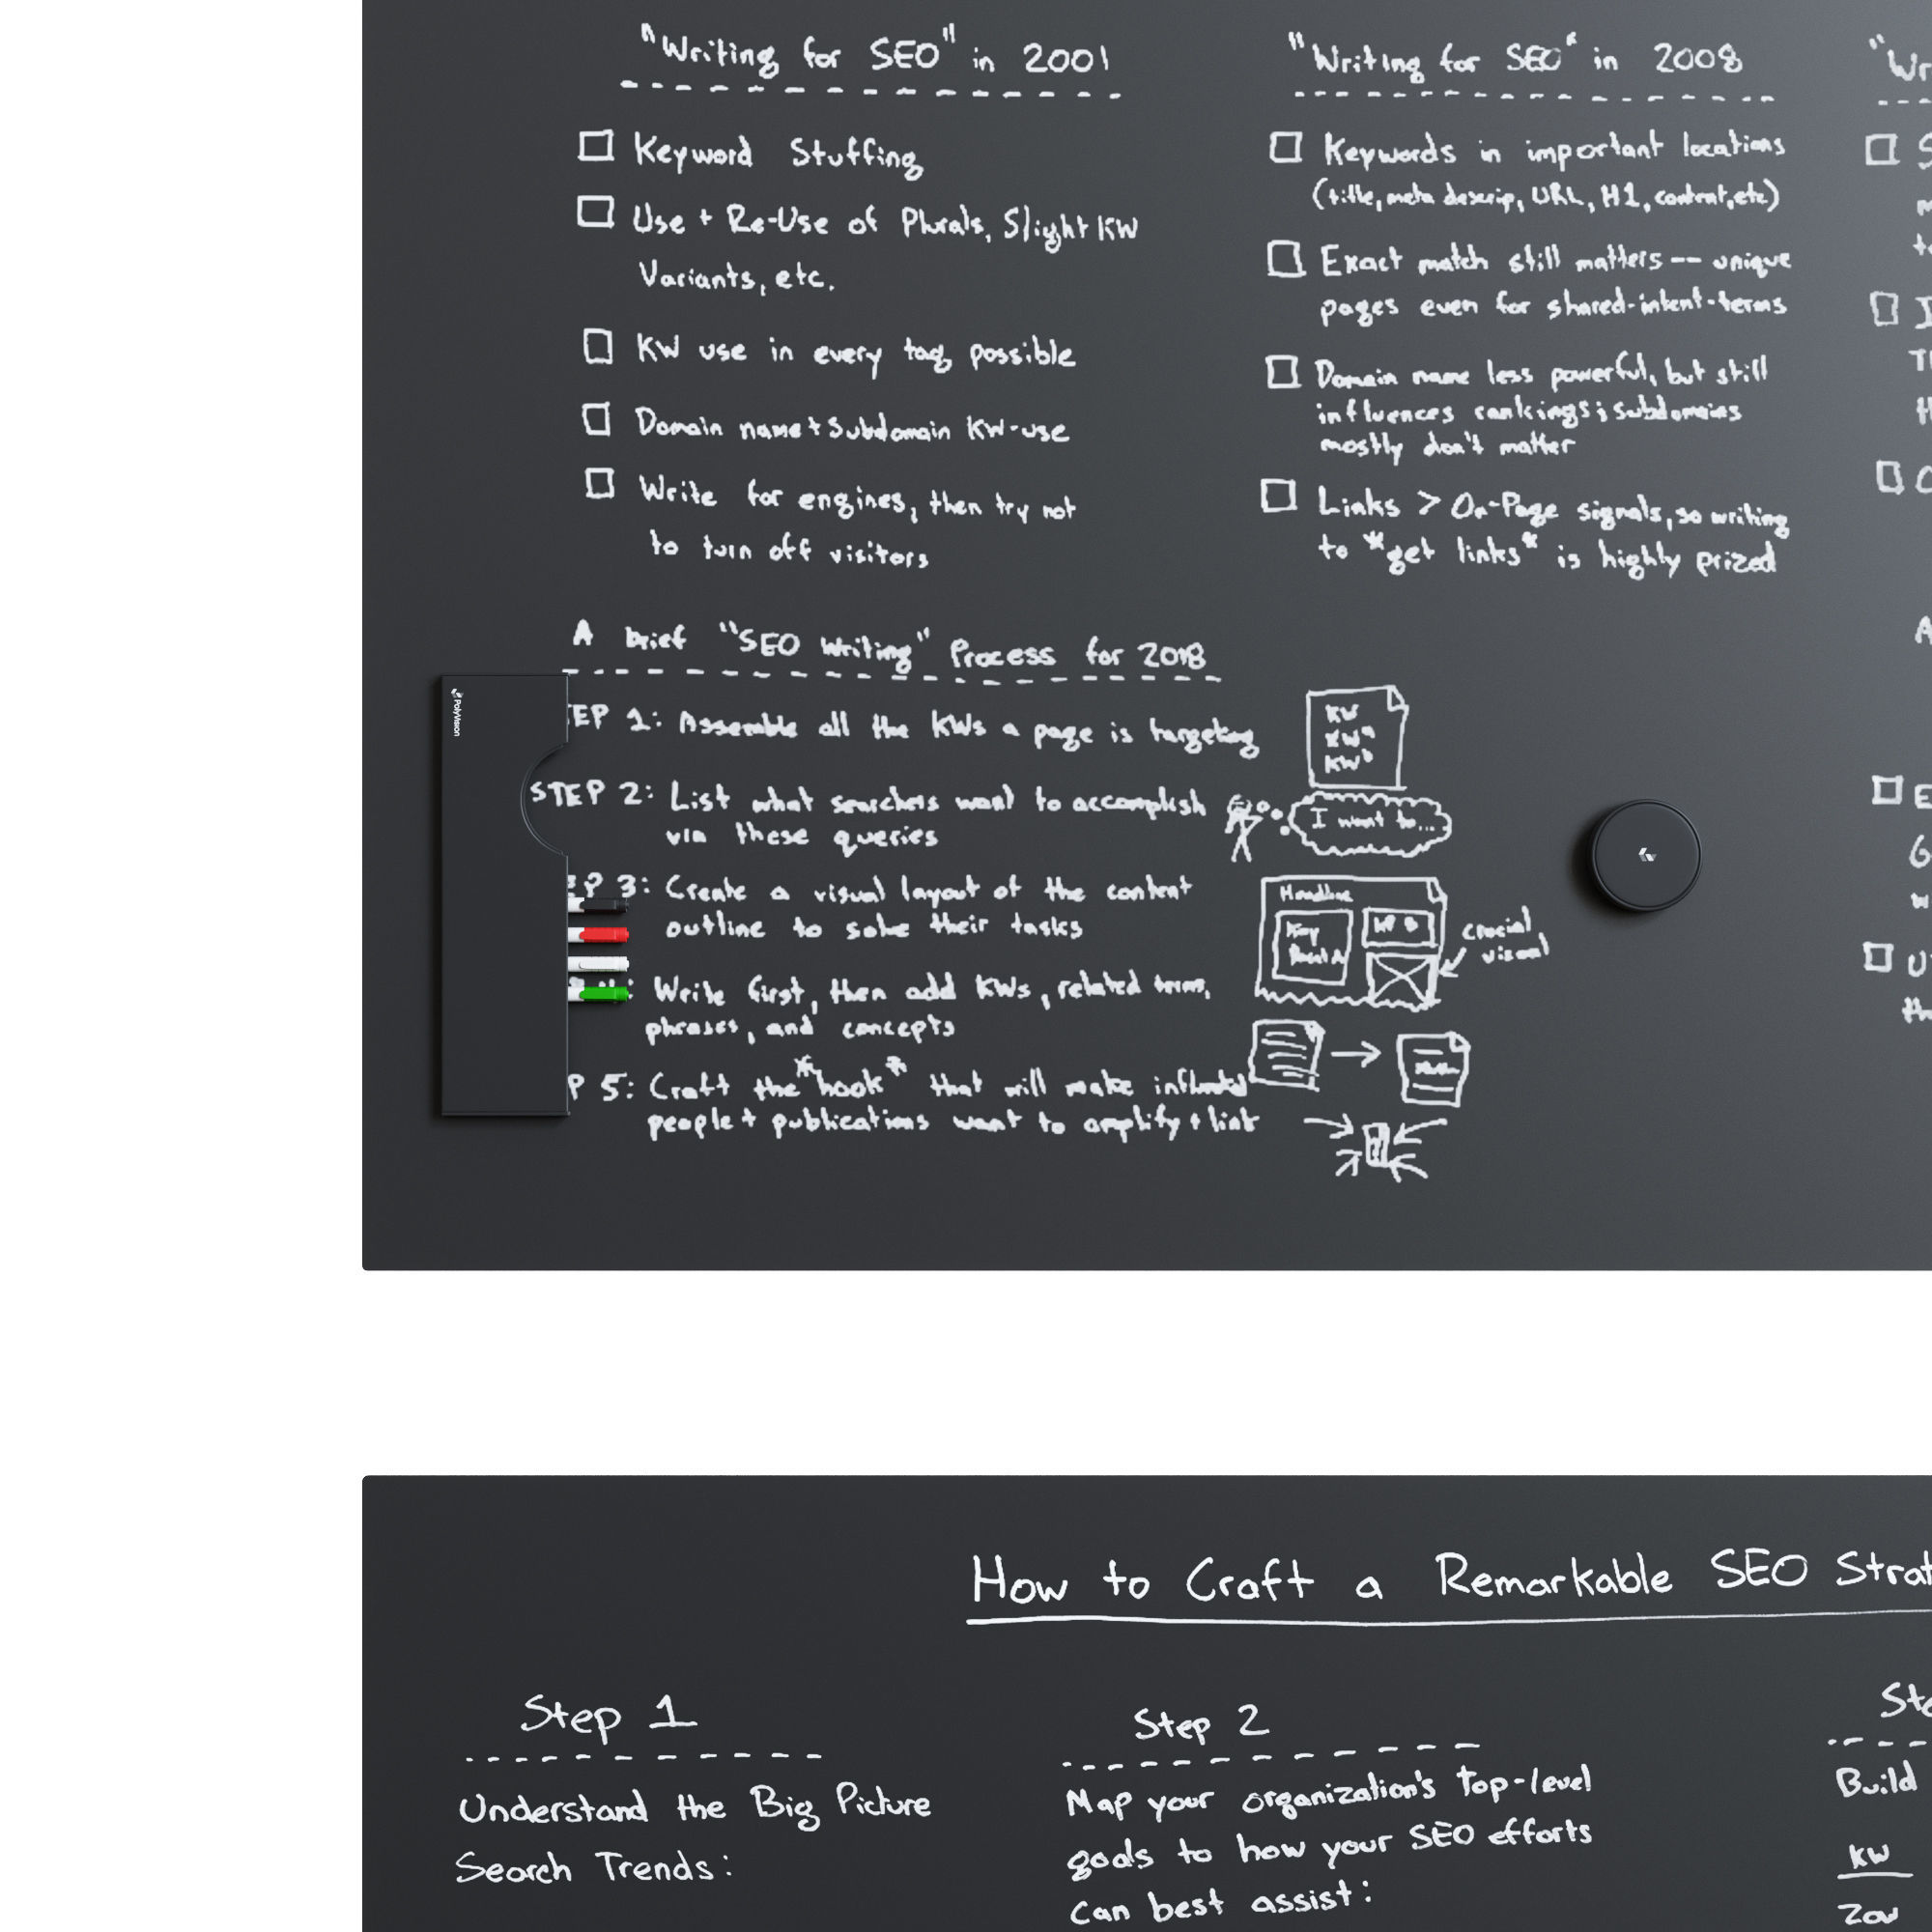 "Writing for SEO" in 2001
Keyword Stuffing
Use + Re-Use of Plurals, Slight KW
Variants, etc.
KW use in every tag possible
Domain name + Subdomain KW-use
Write for engines, then try not
to turn off visitors
"Writing for SEO" in 2008
Keywords in important locations
(title, meta descrip, URL, H1, content, etc)
Exact match still matters -- unique
pages even for shared-intent-terms
Domain name less powerful, but still
influences rankings; subdomains
mostly don't matter
Links > On-Page signals, so writing
to *get links* is highly prized
A brief "SEO Writing" Process for 2018
PolyVision
EP 1: Assemble all the KWs a page is targeting
KW
KWª
KWᵇ
STEP 2: List what searchers want to accomplish
via these queries
I want to...
EP 3: Create a visual layout of the content
outline to solve their tasks
Headline
Key
crucial
visual
: Write first, then add KWs, related terms,
phrases, and concepts
P 5: Craft the *hook* that will make influential
people + publications want to amplify + link
How to Craft a Remarkable SEO Strat
Step 1
Understand the Big Picture
Search Trends:
Step 2
Map your organization's top-level
goals to how your SEO efforts
can best assist:
Ste
Build
KW